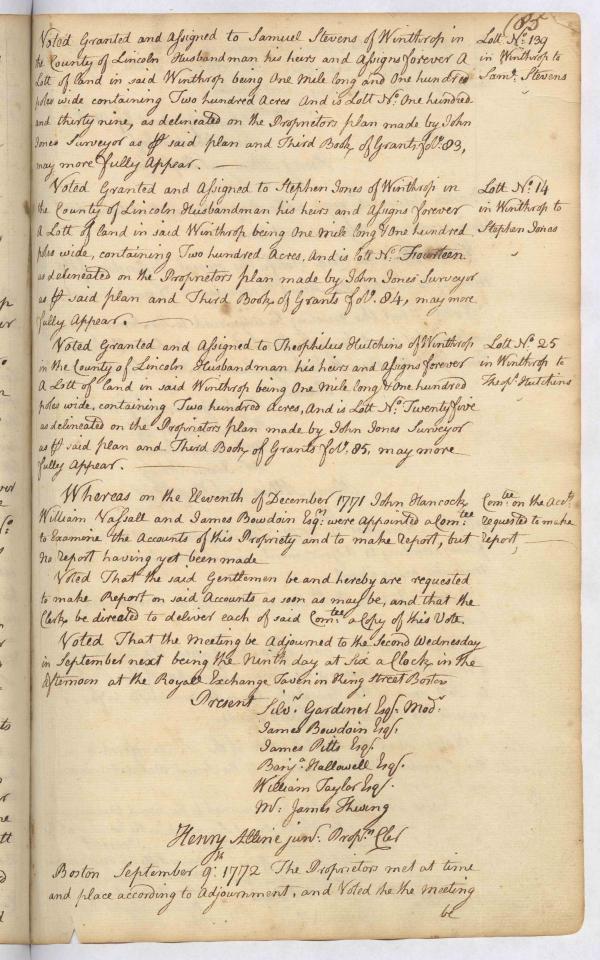 185
Voted Granted and Assigned to Samuel Stevens of Winthrop in
the County of Lincoln Husbandman his heirs and Assigns forever A
Lott of land in said Winthrop being One Mile long and One hundred
poles wide containing Two hundred Acres And is Lott No. One hundred
and thirty nine, as delineated on the Proprietors plan made by John
Jones Surveyor as pr said plan and Third Book of Grants folo. 83,
may more fully Appear.
Lott No. 139
in Winthrop to
Saml. Stevens
Voted Granted and Assigned to Stephen Jones of Winthrop in
the County of Lincoln Husbandman his heirs and Assigns forever
A Lott of land in said Winthrop being One Mile long & One hundred
poles wide, containing Two hundred Acres, And is Lott No. Fourteen
as delineated on the Proprietors plan made by John Jones Surveyor
as pr said plan and Third Book of Grants folo. 84, may more
fully Appear.
Lott No. 14
in Winthrop to
Stephen Jones
Voted Granted and Assigned to Theophilus Hutchins of Winthrop
in the County of Lincoln Husbandman his heirs and Assigns forever
A Lott of land in said Winthrop being One Mile long & One hundred
poles wide, containing Two hundred Acres, And is Lott No. Twenty five
as delineated on the Proprietors plan made by John Jones Surveyor
as pr said plan and Third Book of Grants folo. 85, may more
fully Appear.
Lott No. 25
in Winthrop to
Theops. Hutchins
Whereas on the Eleventh of December 1771 John Hancock
William Vassall and James Bowdoin Esqrs. were Appointed a Comtee
to Examine the Accounts of this Propriety and to make Report, but
no Report having yet been made
Comtee on the Accts.
requested to make
report,
Voted That the said Gentlemen be and hereby are requested
to make Report on said Accounts as soon as may be, and that the
Clerk be directed to deliver each of said Comtee a Copy of this Vote.
Voted That the Meeting be Adjourned to the Second Wednesday
in September next being the Ninth day at Six a Clock in the
Afternoon at the Royall Exchange Tavern in King Street Boston
Present Silvr. Gardiner Esqr. Modr.
James Bowdoin Esqr.
James Pitts Esqr.
Benja. Hallowell Esqr.
William Taylor Esqr.
Mr. James Thwing
Henry Alline junr. Proprs. Cler
Boston September 9. 1772 The Proprietors met at time
and place according to Adjournment, and Voted the the Meeting
be